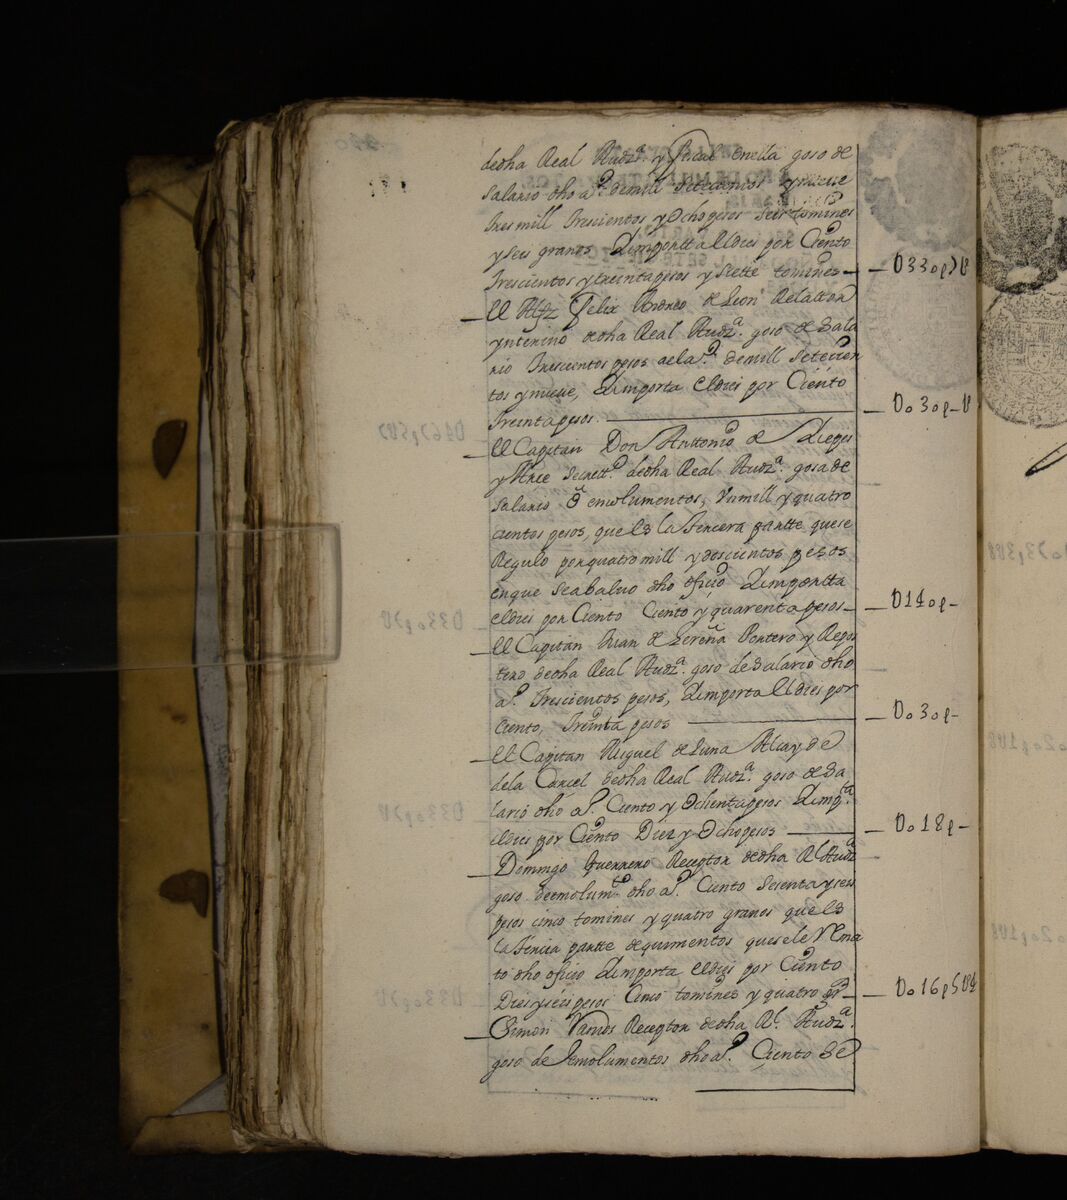 dedha Real Audza. y fiscal enella goso de
salario dho ao. demill setecientos ynueve
tresmill trescientos y ochopesos seis tomines
yseis granos Ymportta Eldies por Ciento
trescientos ytreintapesos y siette tomines — U330p7U
El Alfz Felix Andres de Leon Relattor
ynterino dedha Real Audza. goso de Sala
rio trescientos pesos aela. demill Setecien
tos ynueve, Ymporta eldies por Ciento
treintapesos. — Uo30p-U
El Capitan Don Anttonio de
y Arce Secretto. dedha Real Audza. gosa de
Salario ô emolumentos, Unmill y quatro
cientos pesos, que Es la tercera partte quese
Regulo porquatromill y doscientos pesos
enque Seabaluo dho ofiçio Ymportta
eldies por Ciento Ciento y quarenta pesos — U140p-
El Capitan Juan de Lereña Portero y Repos
tero dedha Real Audza. goso deSalario dho
ao. trescientos pesos, Ymporta Eldies por
Ciento, treinta pesos — Uo30p-
El Capitan Miguel de Luna Alcayde
dela Carcel dedha Real Audza. goso de Sa
lario dho ao. Ciento y Ochentapesos Ympta
eldies por Ciento Diez y Ochopesos — Uo18p-
Domingo Guerrero Receptor dedha Rl Audza
goso deemolumtos dho ao. Ciento Sesenta yseis
pesos cinco tomines y quatro granos que Es
la tercia partte quesele Rema
to dho ofiçio Ymporta eldies por Ciento
Dies yseis pesos Cinco tomines y quatro grs — Uo16p5U4
Simon Ramos Receptor dedha Rl. Audza.
goso de Emolumentos dho ao. Ciento Se